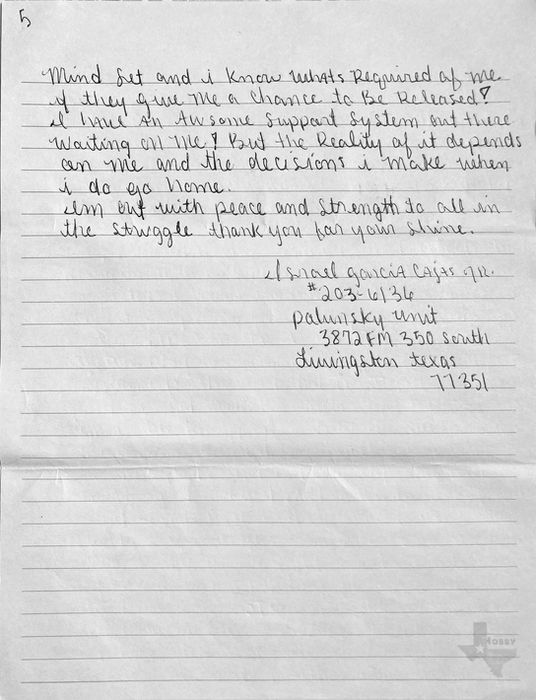 5
Mind Set and i Know whats Required of me
if they give me a Chance to Be Released?
I have an Awsome Support System out there
waiting on me! But the Reality of it depends
on me and the decisions i make when
i do go home.
Im out with peace and Strength to all in
the Struggle thank you for your Shine.
Israel Garcia Cajas Jr.
#203-6136
Palunsky Unit
3872 FM 350 South
Livingston Texas
77351
HOBBY